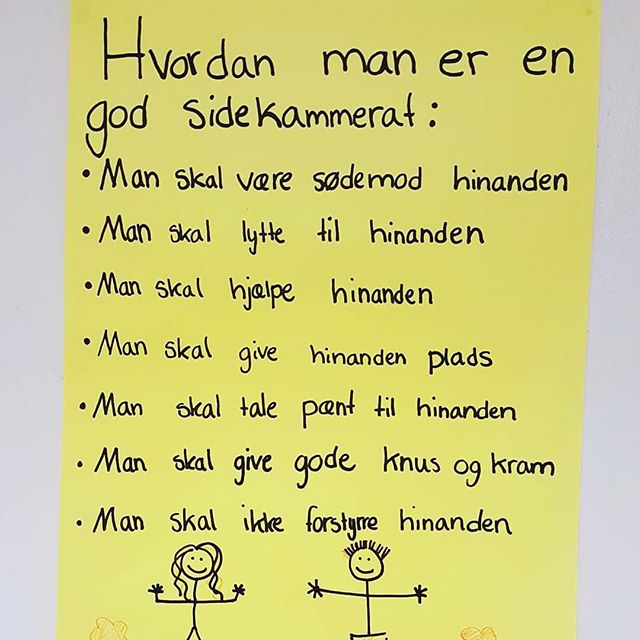 Hvordan man er en
god sidekammerat:
• Man skal være sødemod hinanden
• Man skal lytte til hinanden
• Man skal hjælpe hinanden
• Man skal give hinanden plads
• Man skal tale pænt til hinanden
• Man skal give gode knus og kram
• Man skal ikke forstyrre hinanden